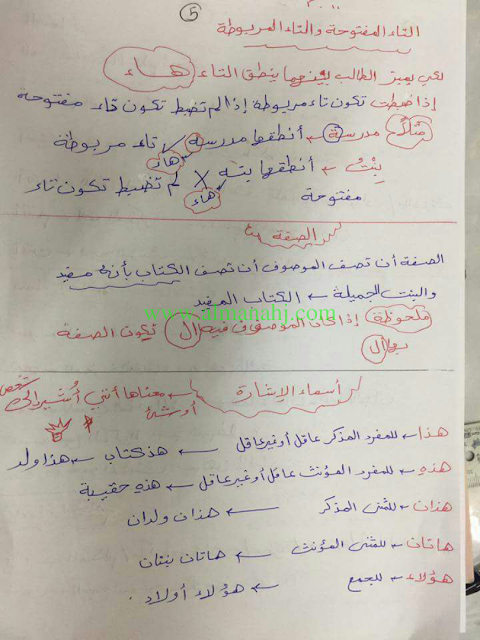 5
التاء المفتوحة والتاء المربوطة
لكي يميز الطالب بينهما ينطق التاء هاء
إذا ضبطت تكون تاء مربوطة إذا لم تضبط تكون تاء مفتوحة
مثلاً مدرسة ← أنطقها مدرسه ✓ تاء مربوطة
هاء
بنت ← أنطقها بنه X لم تضبط تكون تاء
هاء
مفتوحة
الصفة
الصفة أن تصف الموصوف أن تصف الكتاب بأنه مفيد
والبنت الجميلة ← الكتاب المفيد
www.almanahj.com
ملحوظة إذا كان الموصوف فيه ال تكون الصفة
بها ال
أسماء الإشارة ← معناها أنني أشير إلى شخص
أو شيء
هذا ← للمفرد المذكر عاقل أو غير عاقل ← هذ كتاب ← هذا ولد
هذه ← للمفرد المؤنث عاقل أو غير عاقل ← هذه حقيبة
هذان ← للمثنى المذكر ← هذان ولدان
هاتان ← للمثنى المؤنث ← هاتان بنتان
هؤلاء ← للجمع ← هؤلاء أولاد